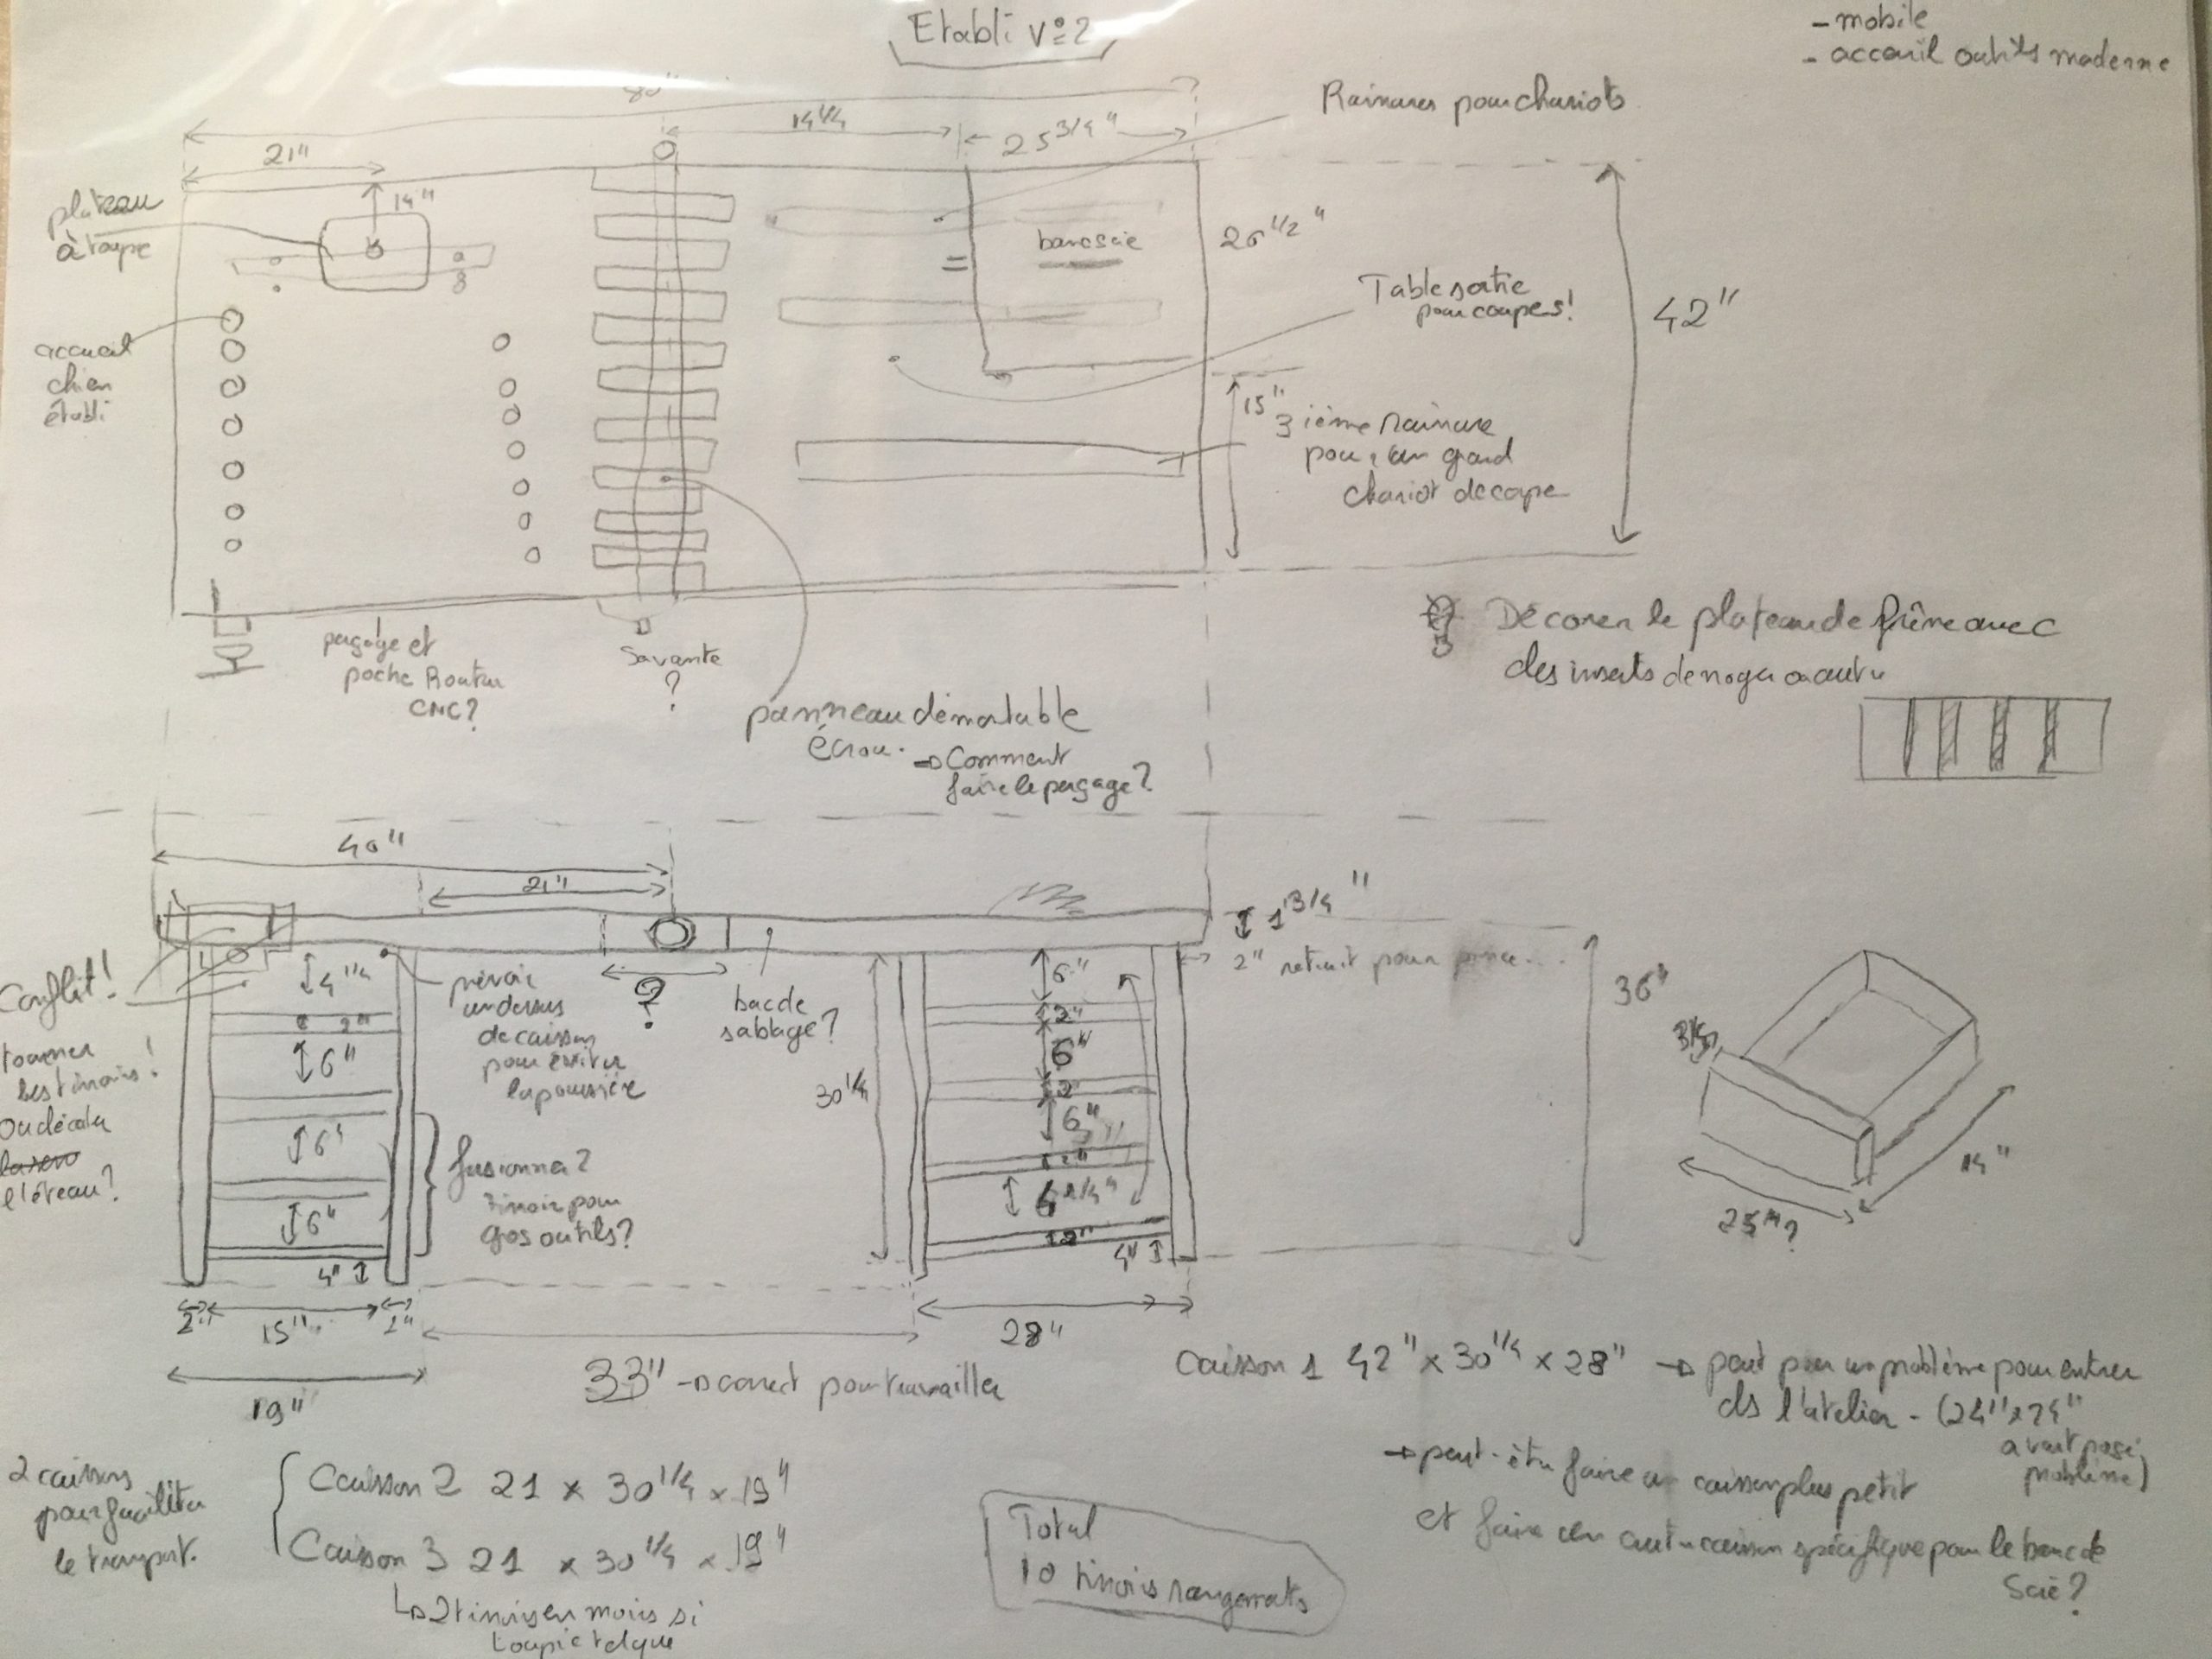 Etabli V°2
- mobile
- accueil outils moderne
80"
Rainures pour chariots
14 1/4
25 3/4"
21"
14"
plateau
à toupie
banc scie
=
26 1/2"
42"
Table sortie
pour coupes!
accueil
chien
établi
15"
3 ième rainure
pour un grand
chariot decoupe
perçage et
poche Router
CNC?
Savante
?
panneau démontable
écrou.
→ Comment
faire le perçage?
Décorer le plateau de frêne avec
des inserts de noyer ou autre
40"
21"
1 3/4"
2" retrait pour
Conflit!
4 1/4
2"
6"
6"
6"
4"
prévoir
un dessus
de caisson
pour éviter
la poussière
?
bac de
sablage?
30 1/4
6"
2"
6"
2"
6"
2"
4"
36"
3/4"
25"?
14"
tourner
les tiroirs!
Ou décaler
l'étau?
fusionner?
tiroir pour
gros outils?
2"
15"
2"
19"
33" → correct pour travailler
28"
Caisson 1 42" x 30 1/4 x 28" → peut poser un problème pour entrer
ds l'atelier - (24" x 24"
avait posé
problème)
→ peut-être faire un caisson plus petit
et faire un autre caisson spécifique pour le banc de
Scie?
2 caissons
pour faciliter
le transport.
Caisson 2 21 x 30 1/4 x 19"
Caisson 3 21 x 30 1/4 x 19"
↳ 2 tiroirs en moins si
toupie telque
Total
10 tiroirs rangements